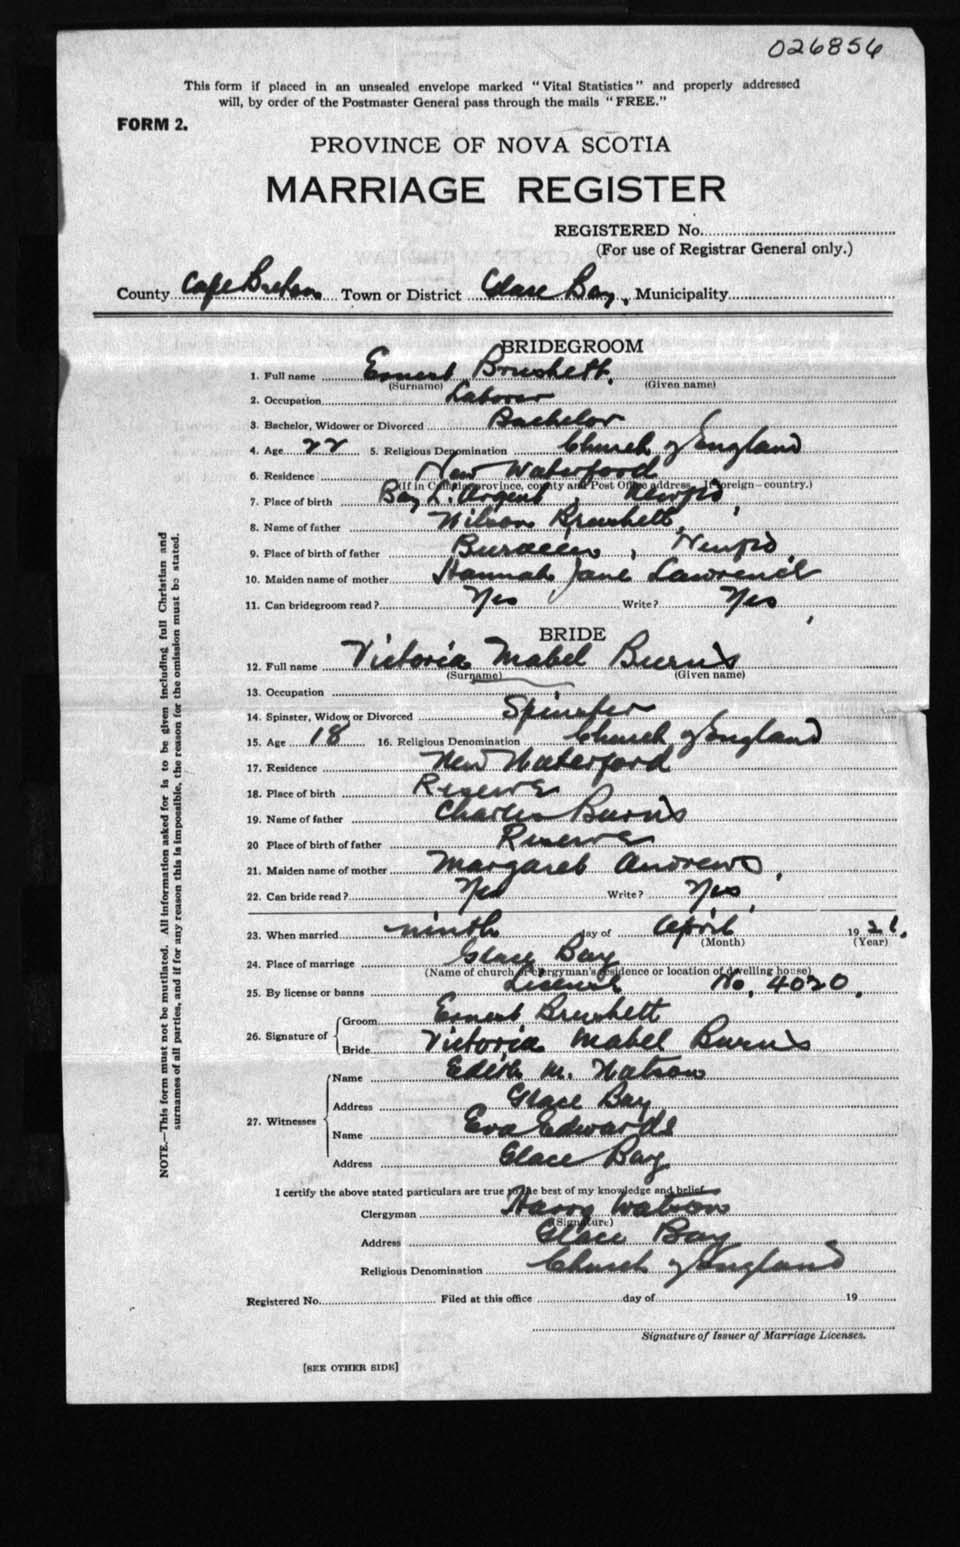 026856
This form if placed in an unsealed envelope marked "Vital Statistics" and properly addressed
will, by order of the Postmaster General pass through the mails "FREE."
FORM 2.
PROVINCE OF NOVA SCOTIA
MARRIAGE REGISTER
REGISTERED No.
(For use of Registrar General only.)
County Cape Breton Town or District Glace Bay, Municipality
BRIDEGROOM
1. Full name Ernest Brushett.
(Surname) (Given name)
2. Occupation Laborer
3. Bachelor, Widower or Divorced Bachelor
4. Age 22 5. Religious Denomination Church of England
6. Residence New Waterford
(If in Canada, province, county and Post Office address. If foreign - country.)
7. Place of birth Bay L. Argent, Newfld,
8. Name of father Wilson Brushett,
9. Place of birth of father , Newfld,
10. Maiden name of mother Hannah Jane Lawrence
11. Can bridegroom read? Yes Write? Yes,
BRIDE
12. Full name Victoria Mabel Burns
(Surname) (Given name)
13. Occupation
14. Spinster, Widow or Divorced Spinster
15. Age 18 16. Religious Denomination Church of England
17. Residence New Waterford
18. Place of birth Reserve
19. Name of father Charles Burns
20 Place of birth of father Reserve
21. Maiden name of mother Margaret Andrews,
22. Can bride read? Yes Write? Yes,
23. When married ninth day of April 1921.
(Month) (Year)
24. Place of marriage Glace Bay
(Name of church or clergyman's residence or location of dwelling house)
25. By license or banns License No, 4020,
26. Signature of Groom Ernest Brushett
Bride Victoria Mabel Burns
27. Witnesses Name Edith M. Watson
Address Glace Bay
Name Eva Edwards
Address Glace Bay
I certify the above stated particulars are true to the best of my knowledge and belief.
Clergyman Harry Watson
(Signature)
Address Glace Bay
Religious Denomination Church of England
Registered No. Filed at this office day of 19
Signature of Issuer of Marriage Licenses.
[SEE OTHER SIDE]
NOTE.—This form must not be mutilated. All information asked for is to be given including full Christian and
surnames of all parties, and if for any reason this is impossible, the reason for the omission must be stated.